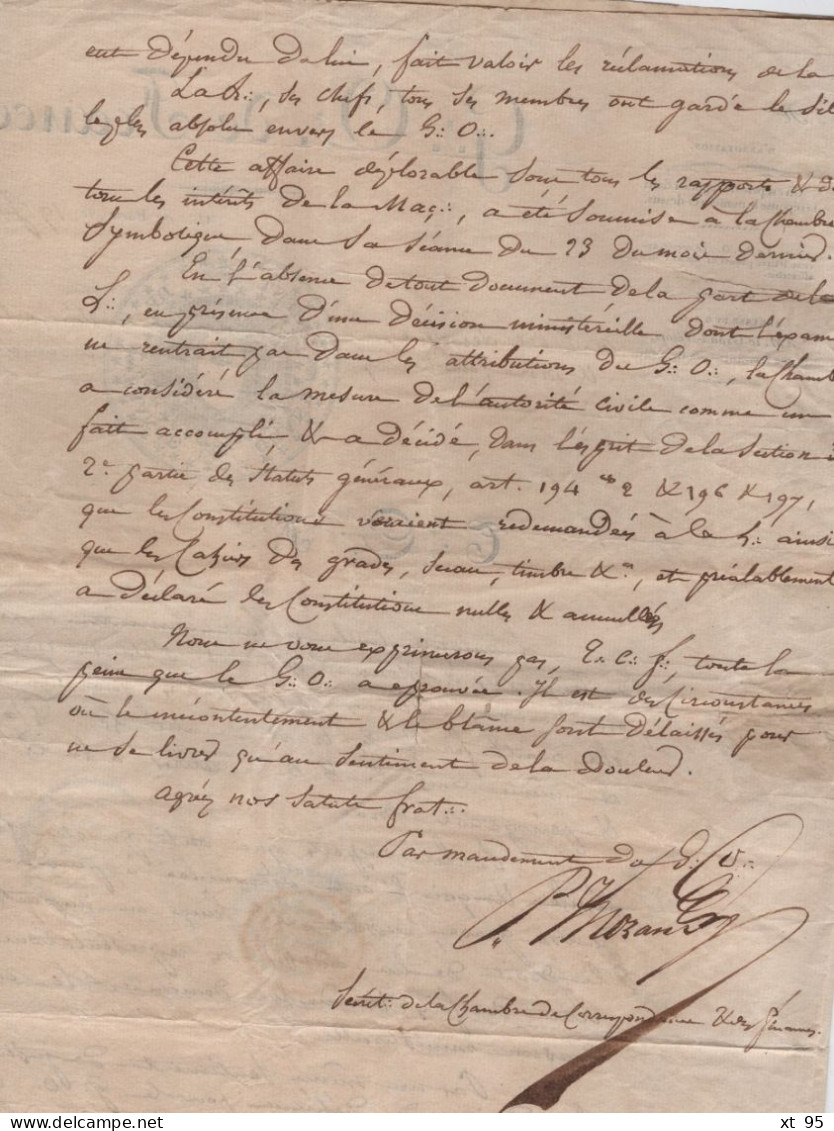 eut dépendu de lui, fait valoir les réclamations de la
La R∴, ses chefs, tous ses membres ont gardé le sil
le plus absolu envers le G∴ O∴.
Cette affaire déplorable sous tous les rapports & da
tous les intérêts de la Maç∴, a été soumise à la Chambre
Symbolique, dans sa séance du 23 du mois dernier.
En l'absence de tout document de la part de la
L∴, en présence d'une décision ministérielle dont l'exame
ne rentrait pas dans les attributions du G∴ O∴, la Chamb
a considéré la mesure de l'autorité civile comme un
fait accompli & a décidé, dans l'esprit de la Section
2e partie des Statuts généraux, art. 194 2 & 196 & 197,
que les Constitutions seraient redemandées à la L∴ ainsi
que les Cahiers des grades, sceau, timbre &a, et préalablement
a déclaré les Constitutions nulles & annullées
Nous ne vous exprimerons pas, T∴ C∴ f∴, toute la
peine que le G∴ O∴ a éprouvée. Il est des circonstances
où le mécontentement & le blâme sont délaissés pour
ne se livrer qu'au sentiment de la douleur.
agréez nos saluts frat∴.
Par mandement du
Secrét∴ de la Chambre de Correspondance & des finances.
xt 95